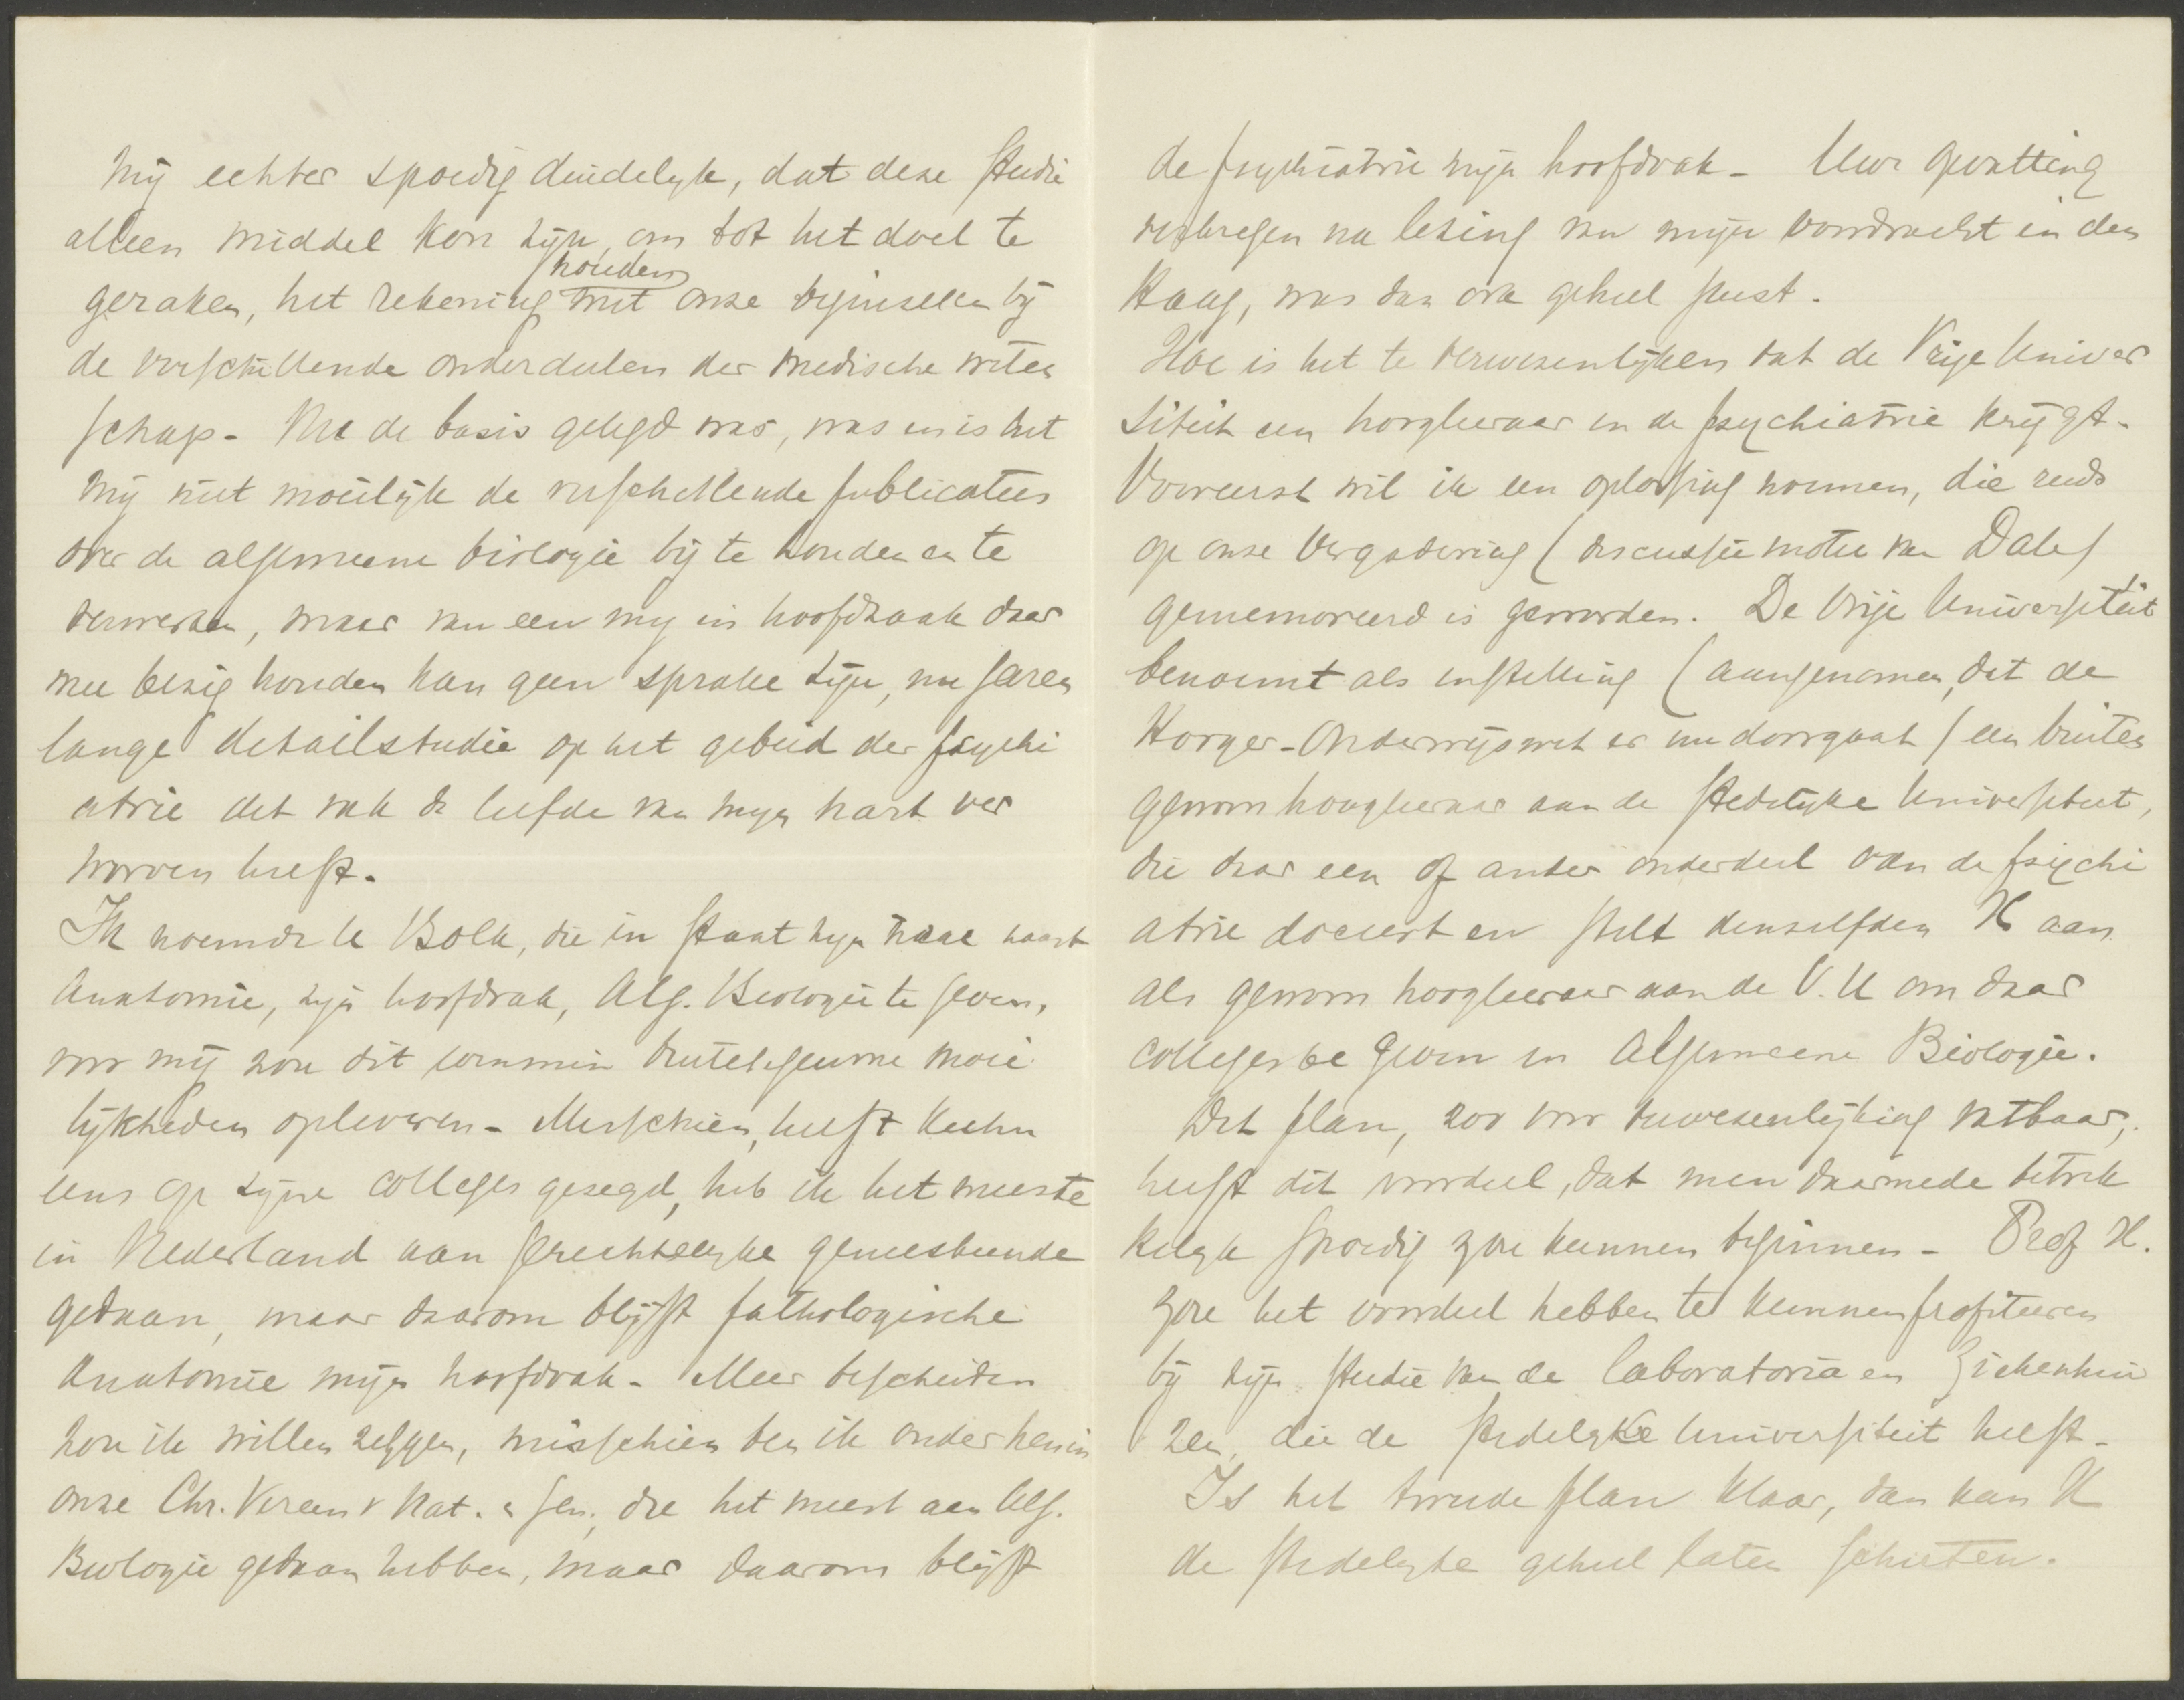 mij echter spoedig duidelyk, dat deze studie
alleen middel kon zijn, om tot het doel te
geraken, het rekening houden met onze beginselen bij
de verschillende onderdeelen der medische weten
schap - Nu de basis gelegd was, was en is het
mij niet moeilijk de verschillende publicaties
over de algemeene biologie bij te houden en te
verwerken, maar van een mij in hoofdzaak daar
mee bezig houden kan geen sprake zijn, nu jaren
lange detailstudie op het gebied der psychi
atrie dit vak de liefde van mijn hart ver
worven heeft.
Ik noemde U Bolk, die in staat zijn naast
Anatomie, zijn hoofdvak, Alg. Biologie te geven,
voor mij zou dit moei
lijkheden opleveren - Misschien, heeft Kuhn
eens op zijne colleges gezegd, heb ik het meeste
in Nederland aan gerechtelyke geneeskunde
gedaan, maar daarom blijft pathologische
Anatomie mijn hoofdvak - Meer bescheiden
zou ik willen zeggen, misschien ben ik onder hen in
onze Chr. Vereen v Nat. en Gen., die het meest aan Alg.
Biologie gedaan hebben, maar daarom blijft
de psychiatrie mijn hoofdvak - Uwe opvatting
verkregen na lezing van mijn voordracht in den
Haag, was dan ook geheel juist.
Hoe is het te verwezenlijken dat de Vrije Univer
siteit een hoogleeraar in de psychiatrie krijgt -
Vooreerst wil ik een oplossing noemen, die reeds
op onze Vergadering (discussie motie van Dale)
gememoreerd is geworden. De Vrije Universiteit
benoemt als instelling (aangenomen, dat de
Hooger-Onderwijswet er nu doorgaat) een buiten
gewoon hoogleeraar aan de Stedelijke Universiteit,
die daar een of ander onderdeel van de psychi
atrie doceert en stelt denzelfden H aan
als gewoon hoogleeraar aan de V.U om daar
colleges te geven in Algemeene Biologie.
Dit plan, zoo voor verwezenlijking vatbaar,
heeft dit voordeel, dat men daarmede betrek
kelyk spoedig zou kunnen beginnen - Prof H.
zou het voordeel hebben te kunnen profiteeren
bij zijn studie van de laboratoria en Ziekenhui
zen, die de stedelyke Universiteit heeft -
Is het tweede plan klaar, dan kan H
de stedelyke geheel laten schieten.